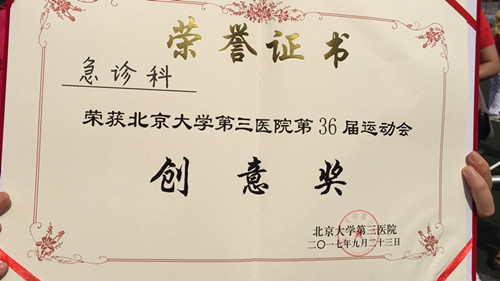 荣誉证书
急诊科
荣获北京大学第三医院第36届运动会
创意奖
北京大学第三医院
二〇一七年九月二十三日